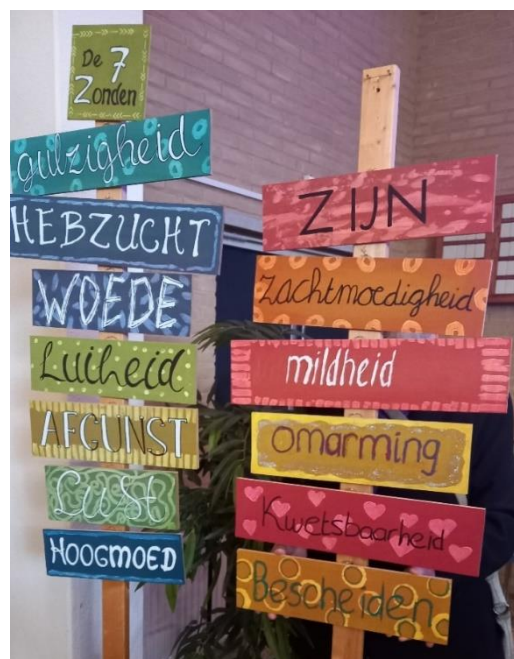 De 7
Zonden
gulzigheid
HEBZUCHT
WOEDE
Luiheid
AFGUNST
Lust
HOOGMOED
ZIJN
Zachtmoedigheid
mildheid
omarming
Kwetsbaarheid
Bescheiden